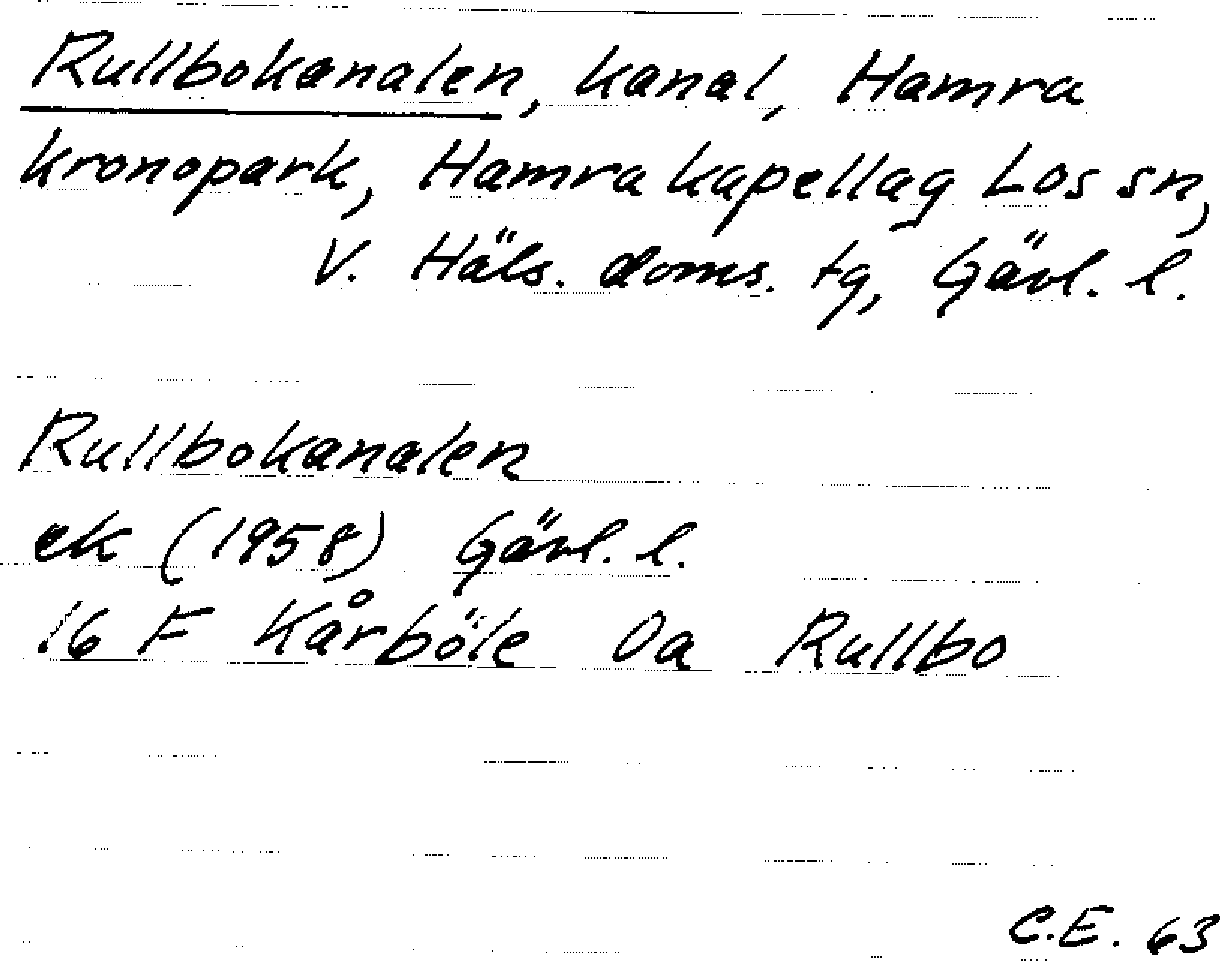 Rullbokanalen, kanal, Hamra
kronopark, Hamra kapellag Los sn,
V. Häls. doms. tg, Gävl. l.
Rullbokanalen
ek (1958) Gävl. l.
16 F Kårböle 0a Rullbo
C.E. 63